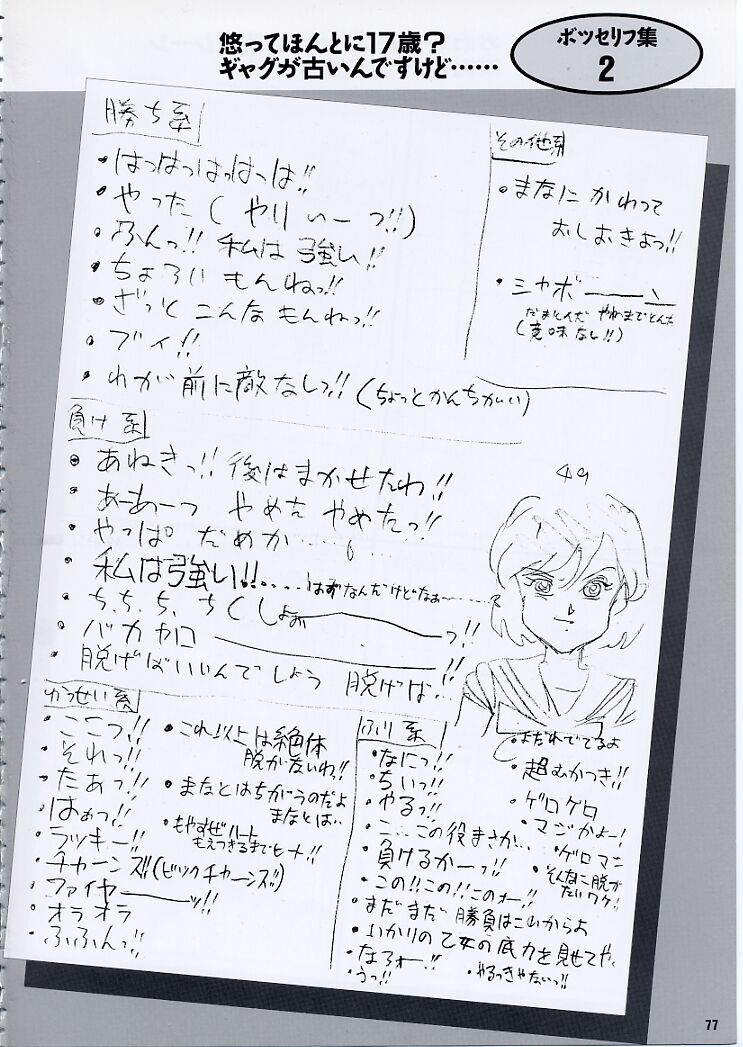 悠ってほんとに17歳?
ギャグが古いんですけど……
ボツセリフ集
2
勝ち系
・はっはっはっはっは!!
・やった(やりぃーっ!!)
・ふんっ!!私は強い!!
・ちょろいもんねっ!!
・ざっとこんなもんねっ!!
・ブイ!!
・わが前に敵なしっ!!(ちょっとかんちがい)
その他系
・まなにかわって
おしおきよっ!!
・シャボーーン
だまとんだ やねまでとんだ
(意味なし!!)
負け系
・あねきっ!!後はまかせたわ!!
・あーあーっ やめた やめたっ!!
・やっぱ だめか……
・私は強い!!....はずなんだけどなぁ〜
・ち、ち、ち、ちくしょおおーーっ!!
・バカヤローーーっ!!
・脱げばいいんでしょう 脱げば..!!
49
かっせい系
・ここっ!!
・それっ!!
・たぁっ!!
・はぁっ!!
・ラッキー!!
・チャーンズ(ビックチャーンズ)
・ファイヤーーッ!!
・オラオラ
・ふふんっ!!
・これ以上は絶体
脱がないわ!!
・まなとはちがうのだよ
まなとは..
・もやすぜハート
もえつきるまでヒート!!
ふり系
・なにっ!!
・ちいっ!!
・やるっ!!
・こ…この役まさか…
・負けるかーっ!!
・この!!この!!このォー!!
・まだまだ勝負はこれからよ
・いかりの乙女の底力を見せてやる
・なろォー!!
・うっ!!
・やるっきゃないっ!!
・まだれでてるよ
・超むかつき!!
・ゲロゲロ
・マジかよー!
・ゲロマニ
・そんなに脱が
たいワケ!
77